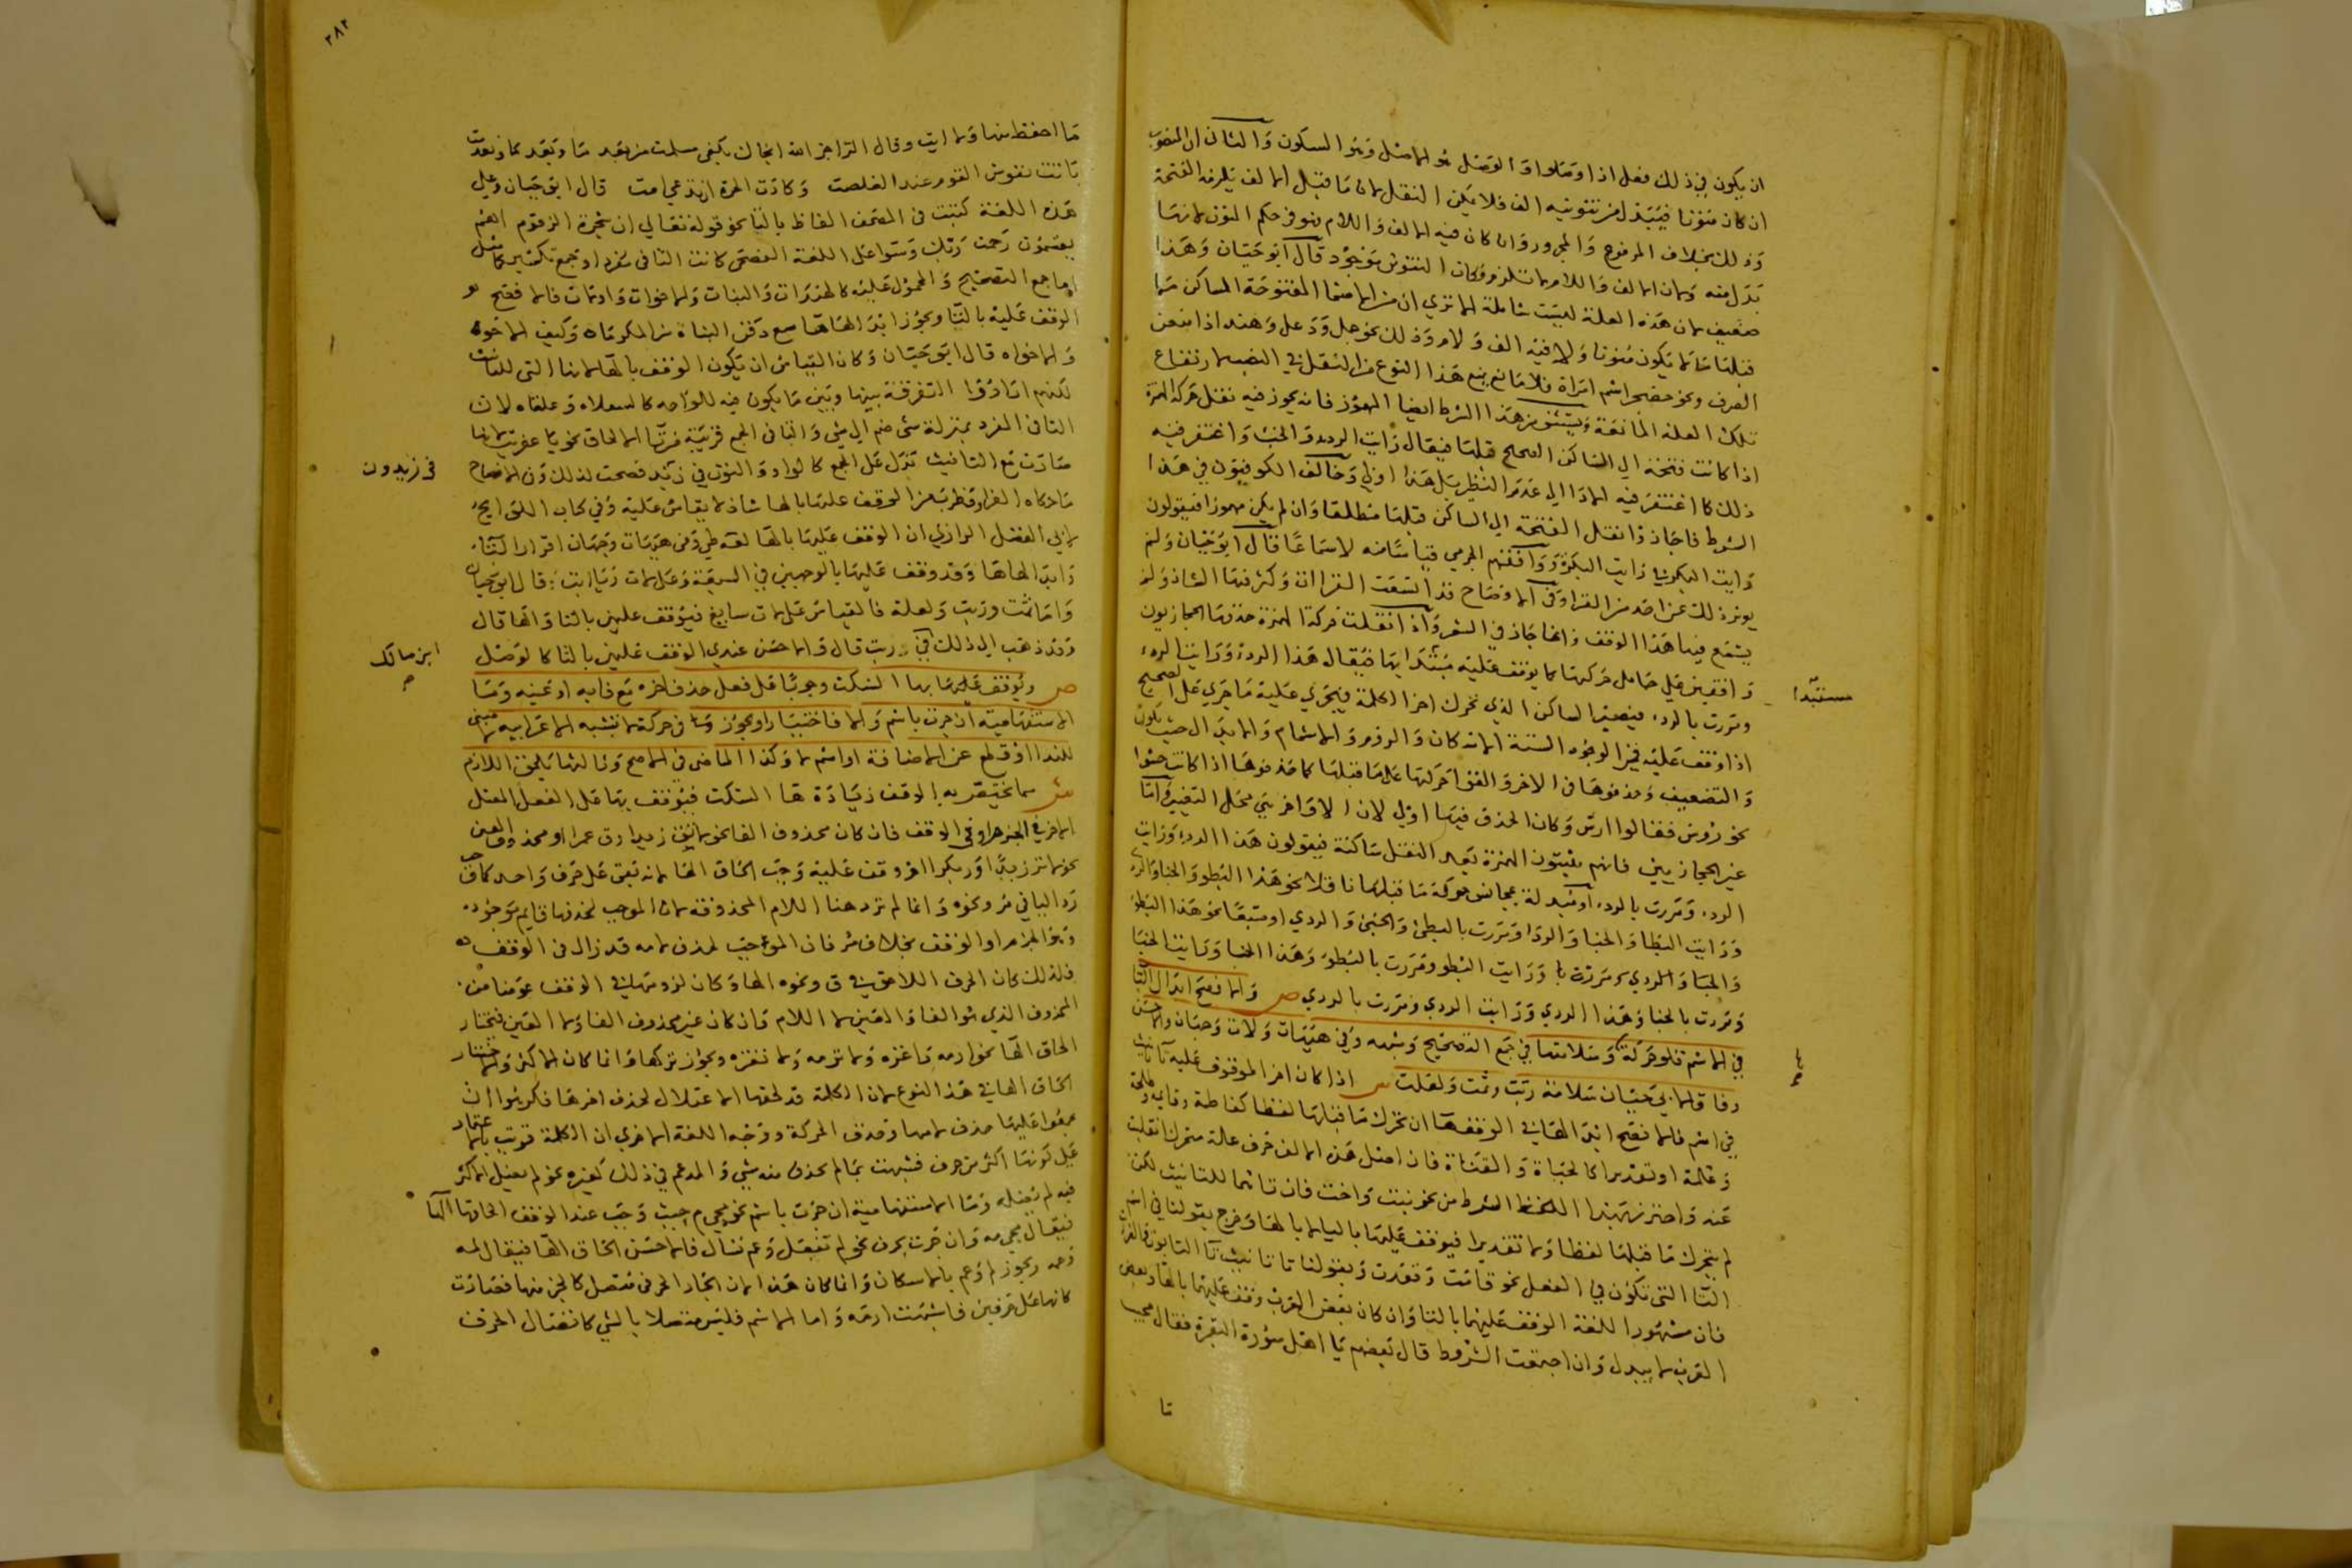 ان يكون في ذلك فعل اذا وصلوا والوصل هو الاصل وهو السكون والثاني ان المنصوب
ان كان منونا فيبدل من تنوينه الف فلا يمكن النقل لان ما قبل الالف يلزمه الفتحة
وذلك بخلاف المرفوع والمجرور وان كان فيه الالف واللام فهو في حكم المنون لانها
بدل منه ولان الالف واللام لا تلزم وكان التنوين موجود قال ابو حيان وهذا
ضعيف لان هذه العلة ليست شاملة الا ترى ان من الاسما المفتوحة الساكن ما
قبلها ما لا يكون منونا ولا فيه الف ولام وذلك نحو جمل ودعد وهند اذا منعن
الصرف ونحو حضجر اسم امراة فلا مانع يمنع هذا النوع من النقل في النصب لارتفاع
تلك العلة المانعة ويستثنى من هذا الشرط ايضا المهموز فانه يجوز فيه نقل حركة الهمزة
اذا كانت فتحة الى الساكن الصحيح قبلها فيقال رايت الردء والخبء واغتفر فيه
ذلك كما اغتفر فيه الادا الى عدم النظير بل هذا اولى وخالف الكوفيون في هذا
الشرط فاجازوا نقل الفتحة الى الساكن قبلها مطلقا وان لم يكن مهموزا فيقولون
رايت البكر في رايت البكر ووافقهم الجرمي قياسا منه لا سماعا قال ابو حيان ولم
يوثر ذلك عن احد من القرا وفي الافصاح قد اتسعت القراات وكثر فيها الشاذ ولم
يسمع فيها هذا الوقف وانما جاز في الشعر واذا نقلت حركة الهمزة حذفها الحجازيون
واقفين على حامل حركتها كما يوقف عليه مستبدا بها فيقال هذا الرد ورايت الرد
ومررت بالرد فيصير الساكن الذي تحرك اخر الكلمة فيجري عليه ما جرى على الصحيح
اذا وقف عليه فيه الوجوه الستة الاسكان والروم والاشمام والابدال حيث تكون
والتضعيف وحذفوها في الاخر والقوا حركتها على ما قبلها كما حذفوها اذا كانت حشوا
نحو رؤس فقالوا ارس وكان الحذف فيها اولى لان الاواخر هي محل التغيير واما
غير الحجازيين فانهم يثبتون الهمزة بعد النقل ساكنة فيقولون هذا الردء ورايت
الردء ومررت بالردء او مبدلة بمجانس حركة ما قبلها ناقلا نحو هذا البطو والخبا والرد
ورايت البطا والخبا والردا ومررت بالبطئ والخبئ والردي او متبعا نحو هذا البطو
والخبا والردي ومررت با ورايت البطو ومررت بالبطو وهذا الخبا ورايت الخبا
ومررت بالخبا وهذا الردي ورايت الردي ومررت بالردي ص والافصح ابدال التا
في الاسم تلو حركة ها وسلامتها في جمع التصحيح وشبهه وفي هيهات ولات وجهان والاحسن
وفاقا لابي حيان سلامة ربت وثمت ولعلت ش اذا كان اخر الموقوف عليه تا تانيث
في اسم فالافصح ابدالها في الوقف ها ان تحرك ما قبلها لفظا كفاطمة وقايمة وطلحة
وغلمة او تقديرا كالحياة والقناة فان اصل هذه الالف حرف علة متحرك انقلبت
عنه واحترز بهذا الشرط من نحو بنت واخت فان تاهما للتانيث لكن
لم يتحرك ما قبلها لفظا ولا تقديرا فيوقف عليها بالتا لا بالها وخرج بقولنا في اسم
التا التي تكون في الفعل نحو قامت وقعدت وبقولنا تا تانيث تا التابوت والفرات
فان مشهور اللغة الوقف عليهما بالتا وان كان بعض العرب وقف عليهما بالها وبعض
العرب لا يبدل وان اجتمعت الشروط قال بعضهم يا اهل سورة البقرة فقال مجيب
مستبدا
ها
تا
٣٨٢
ما احفظ منها ولا ايت وقال الراجز الله انجاك بكفي مسلمت من بعد ما وبعد ما وبعدمت
كانت نفوس القوم عند الغلصمت وكادت الحرة ان تدعى امت قال ابو حيان وعلى
هذه اللغة كتبت في المصحف الفاظ بالتا نحو قوله تعالى ان شجرة الزقوم اهم
يقسمون رحمت ربك وسوا على اللغة الفصحى كانت التا في مفرد او جمع تكسير كما مثل
اما جمع التصحيح والمحمول عليه كالهندات والبنات والاخوات واولات فالافصح
الوقف عليه بالتا ويجوز ابدالها ها سمع دفن البناه من المكرماه وكيف الاخوه
والاخواه قال ابو حيان وكان القياس ان يكون الوقف بالها لانها التي للتانيث
لكنهم ارادوا التفرقة بينها وبين ما يكون فيه للواحد كالسعلاه وعلقاه لان
التا في المفرد بمنزلة شي ضم الى شي والتا في الجمع قريبة من تا الالحاق نحو تا عفريت لانها
صارت مع التانيث تدل على الجمع كالواو والنون في زيد فصحت لذلك وفي الافصاح
ما حكاه الفرا وقطرب من الوقف عليها بالها شاذ لا يقاس عليه وفي كتاب اللوامح
لابي الفضل الرازي ان الوقف عليها بالها لغة طي وفي هيهات وجهان اقرار التا
وابدالها ها وقد وقف عليها بالوجهين في السبعة وعلى لات ويا ابت قال ابو حيان
واما ثمت وربت ولعلة فالقياس على لات سايغ فيوقف عليهن بالتا والها قال
وقد ذهب الى ذلك في ربت قال والاحسن عندي الوقف عليهن بالتا كالوصل
ص ويوقف عليها بها السكت وجوبا على فعل حذف اخره مع فايه او عينه وما
الاستفهامية ان جرت باسم والا فاختيارا ويجوز في حركة لا تشبه الاعرابية لا مبني
للندا او قطع عن الاضافة او اسم لا وكذا الماضي في الاصح وثالثها يلحق اللازم
ش مما يختص به الوقف زيادة ها السكت فيوقف بها على الفعل المعتل
الاخر في الجزم او في الوقف فان كان محذوف الفا نحو لا تق زيدا وق عمرا او محذوف العين
نحو لا تر زيدا ور بكرا الزم وقف عليه وجب الحاق الها لانه بقي على حرف واحد كما وجب
رد اليا في مر ونحوه وانما لم ترد هنا اللام المحذوفة لان الموجب لحذفها قايم موجود
وهو الجزم او الوقف بخلاف مر فان الموجب لحذف لامه قد زال في الوقف
فلذلك كان الحرف اللاحق في ق ونحوه الها وكان لزومها في الوقف عوضا من
المحذوف الذي هو الفا والعين لا اللام وان كان غير محذوف الفا ولا العين فيختار
الحاق الها نحو ارمه واغزه ولا ترمه ولا تغزه ويجوز تركها وانما كان الاكثر والمختار
الحاق الها في هذا النوع لان الكلمة قد لحقها الاعتلال لحذف اخرها فكرهوا ان
يجمعوا عليها حذف لامها وحذف الحركة ووجه اللغة الاخرى ان الكلمة قويت بالاعتماد
على كونها اكثر من حرف فشبهت بما لم يحذف منه شي والمدغم في ذلك كغيره نحو لم يعتل الاكثر
فيه لم يعتله وما الاستفهامية ان جرت باسم نحو مجي م جيت وجب عند الوقف الحاقها الها
فيقال مجي مه وان جرت بحرف نحو لم تفعل وعم تسال فالاحسن الحاق الها فيقال لمه
وعمه ويجوز لم وعم بالاسكان وانما كان هذا لان الجار الحرفي متصل كالجز منها فصارت
كانها على حرفين فاشبهت ارمه واما الاسم فليس متصلا بالشي كاتصال الحرف
في زيدون
ابن مالك